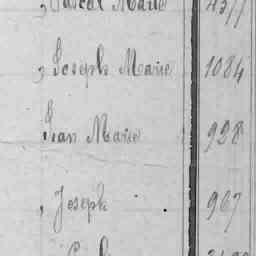 , Pascal Marie
, Joseph Marie 1084
Jean Marie 928
, Joseph 967